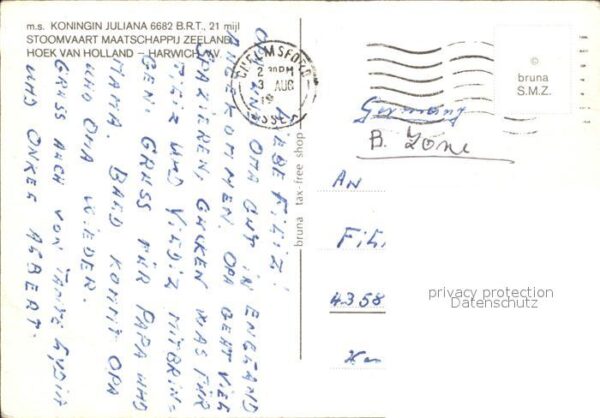 m.s. KONINGIN JULIANA 6682 B.R.T., 21 mijl
STOOMVAART MAATSCHAPPIJ ZEELAND
HOEK VAN HOLLAND – HARWICH N.V.
CHELMSFORD
2 30PM
3 AUG
19
ESSEX
©
bruna
S.M.Z.
Germany
B. Zone
bruna tax-free shop
LIEBE FILIZ!
OPA UND OMA GUT IN ENGLAND
ANGEKOMMEN. OPA GEHT VIEL
SPAZIEREN, GUCKEN WAS FÜR
FILIZ UND YILDIZ MITBRIN=
GEN. GRUSS FÜR PAPA UND
MAMA. BALD KOMMT OPA
UND OMA WIEDER.
GRUSS AUCH VON TANTE LYDIA
UND ONKEL ALBERT.
AN
FILI
4358
Ha
privacy protection
Datenschutz